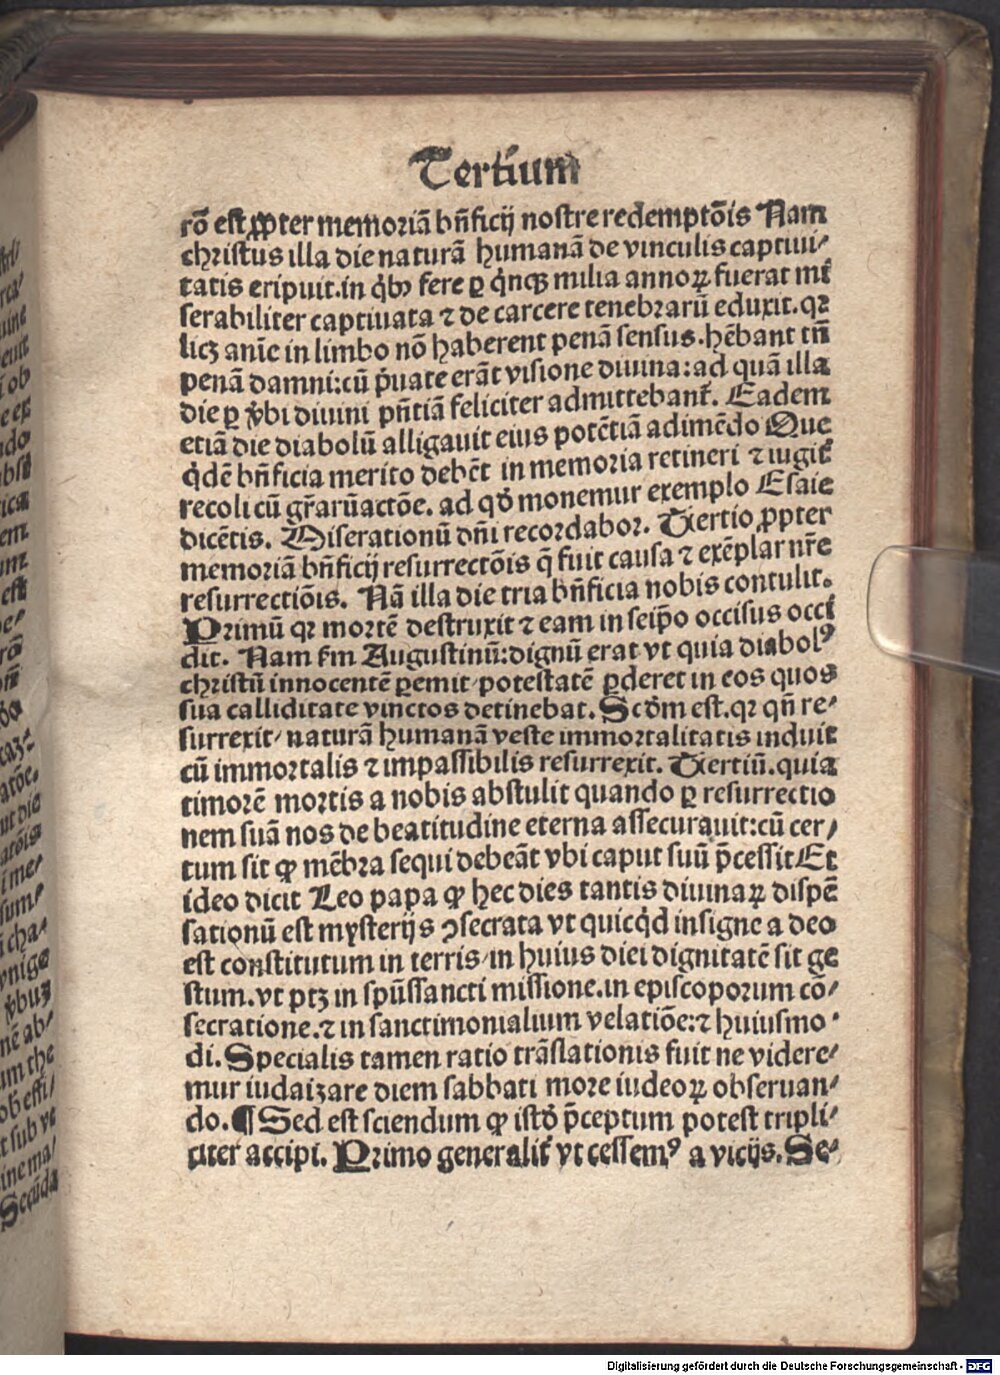 Tertium
rō est ꝓpter memoriā bn̄ficij nostre redemptōis Nam
christus illa die naturā humanā de vinculis captiui⸗
tatis eripuit.in q̇bꝰ fere ꝑ q̇nqꝫ milia annoꝝ fuerat mi
serabiliter captiuata ⁊ de carcere tenebrarū eduxit.qꝛ
licꝫ anīe in limbo nō haberent penā sensus.hēbant tn̄
penā damni:cū p̄uate erāt visione diuina:ad quā illa
die ꝑ v̄bi diuini pn̄tiā feliciter admittebant̄. Eadem
etiā die diabolū alligauit eius potētiā adimēdo Que
q̇dē bn̄ficia merito debēt in memoria retineri ⁊ iugit̄
recoli cū gr̄arūactōe. ad qḋ monemur exemplo Esaie
dicētis. Miserationū dn̄i recordabor. Tertio ꝓpter
memoriā bn̄ficij resurrectōis q̄ fuit causa ⁊ exēplar nr̄e
resurrectiōis. Nā illa die tria bn̄ficia nobis contulit.
Primū qꝛ mortē destruxit ⁊ eam in seip̄o occisus occi
dit. Nam s̄m Augustinū:dignū erat vt quia diabolꝰ
christū innocentē ꝑemit/potestatē ꝑderet in eos quos
sua calliditate vinctos detinebat. Scḋm est.qꝛ qn̄ re⸗
surrexit/naturā humanā veste immortalitatis induit
cū immortalis ⁊ impassibilis resurrexit. Tertiū.quia
timorē mortis a nobis abstulit quando ꝑ resurrectio
nem suā nos de beatitudine eterna assecurauit:cū cer⸗
tum sit ꝙ mēbra sequi debeāt vbi caput suū p̄cessit Et
ideo dicit Leo papa ꝙ hec dies tantis diuinaꝝ dispē
sationū est mysterijs ꝯsecrata vt quicq̇d insigne a deo
est constitutum in terris/in huius diei dignitatē sit ge
stum.vt ptꝫ in spūssancti missione.in episcoporum cō⸗
secratione.⁊ in sanctimonialium velatiōe:⁊ huiusmo⸗
di. Specialis tamen ratio trāslationis fuit ne videre⸗
mur iudaizare diem sabbati more iudeoꝝ obseruan⸗
do. ¶ Sed est sciendum ꝙ istḋ p̄ceptum potest tripli⸗
citer accipi. Primo generalit̄ vt cessemꝰ a vicijs. Se⸗
Digitalisierung gefördert durch die Deutsche Forschungsgemeinschaft - DFG